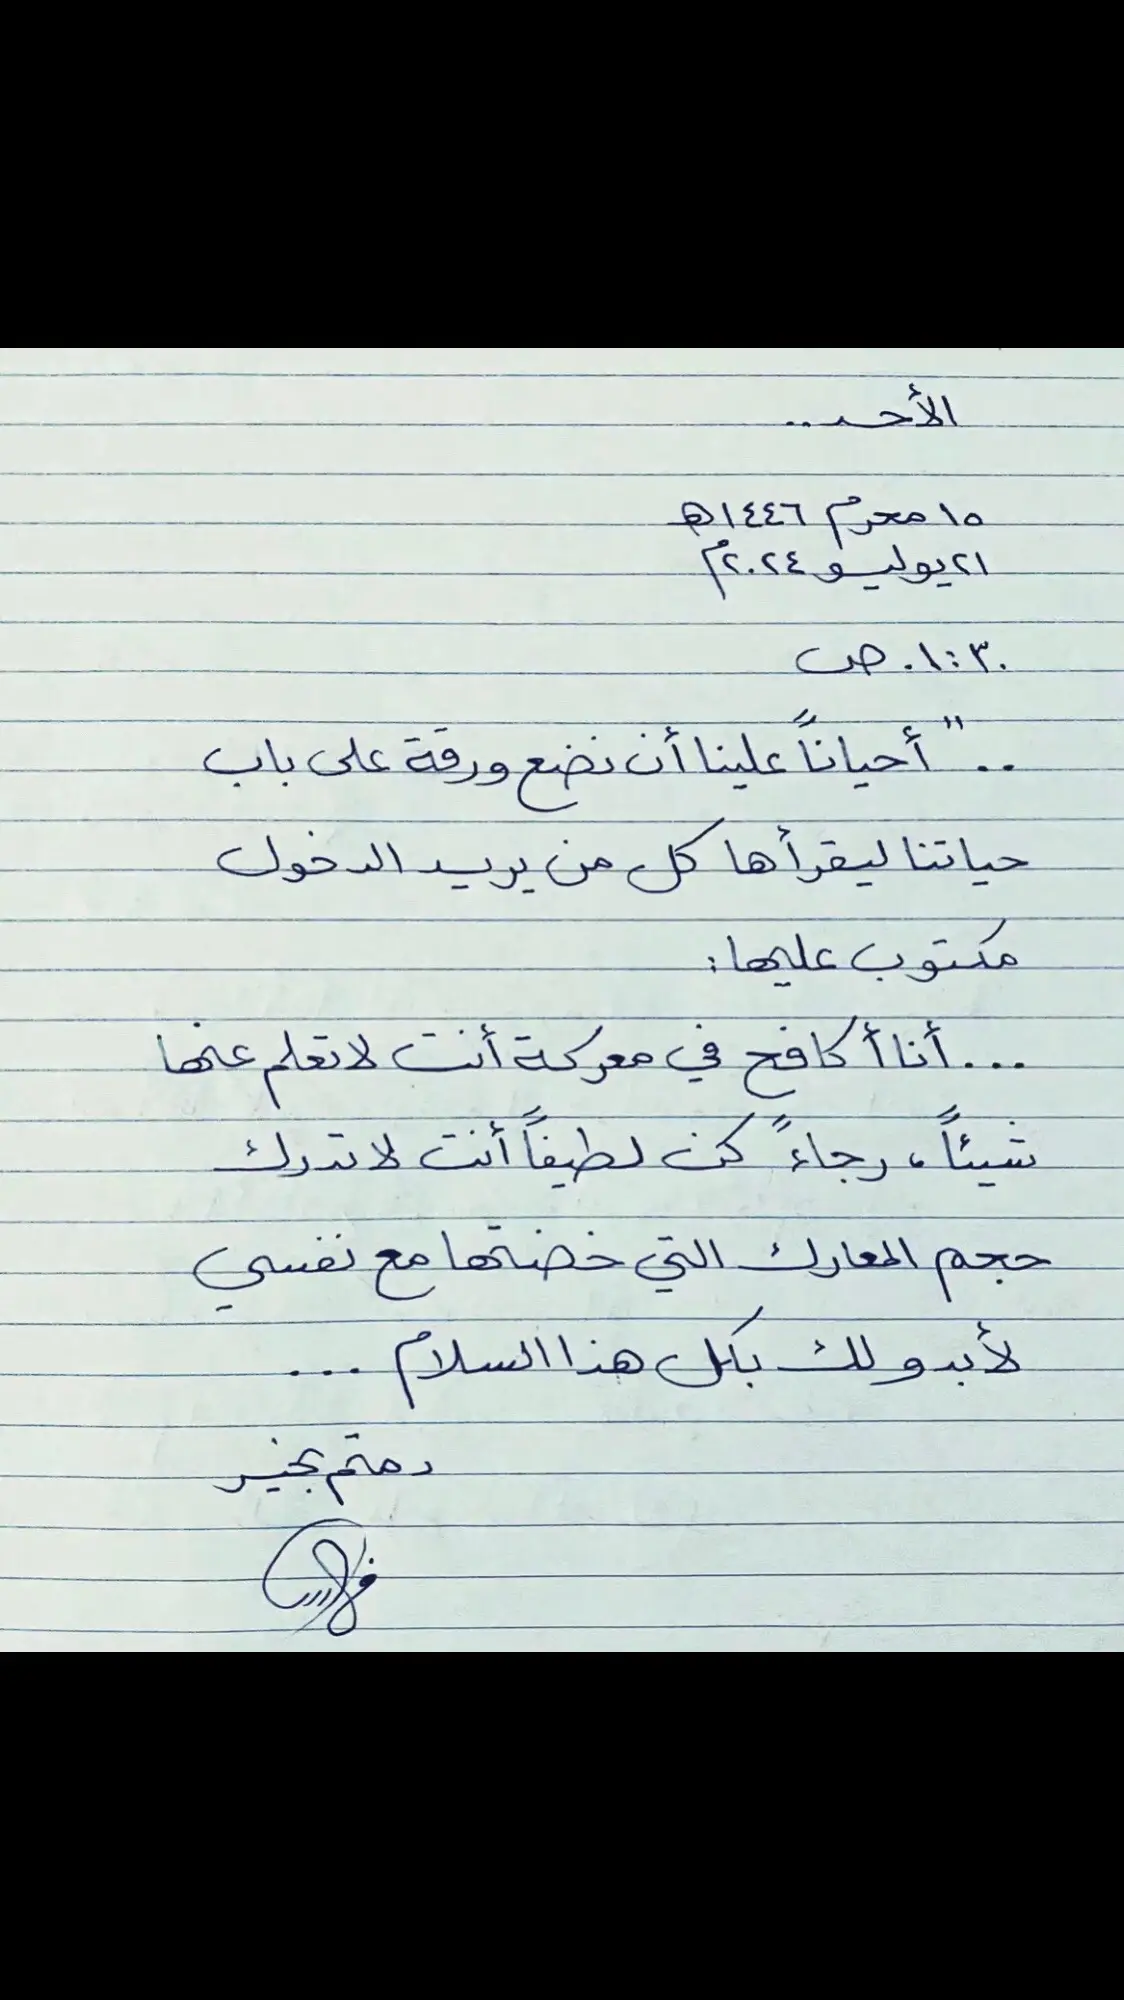 الأحد..
١٥ محرم ١٤٤٦هـ
٢١ يوليو ٢٠٢٤م
٠١:٣٠ ص
.. " أحياناً علينا أن نضع ورقة على باب
حياتنا ليقرأها كل من يريد الدخول
مكتوب عليها:
... أنا أكافح في معركة أنت لا تعلم عنها
شيئاً، رجاءً كن لطيفاً أنت لا تدرك
حجم المعارك التي خضتها مع نفسي
لأبدو لك بكل هذا السلام ...
دمتم بخير